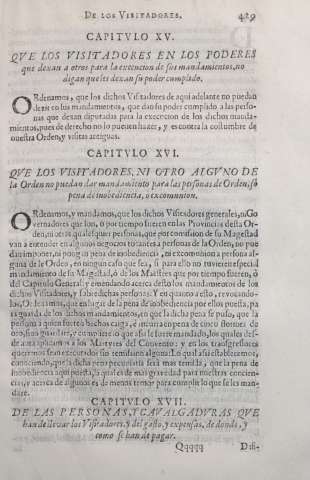 DE LOS VISITADORES. 429
CAPITVLO XV.
QVE LOS VISITADORES EN LOS PODERES
que dexan a otros para la execucion de sus mandamientos, no
digan que les dexan su poder cumplido.
ORdenamos, que los dichos Visitadores de aqui adelante no puedan
dezir en sus mandamientos, que dan su poder cumplido a las perso-
nas que dexan diputadas para la execucion de los dichos manda-
mientos, pues de derecho no lo pueden hazer, y es contra la costumbre de
nuestra Orden, y visitas antiguas.
CAPITVLO XVI.
QVE LOS VISITADORES, NI OTRO ALGVNO DE
la Orden no puedan dar mandamiento para las personas de Orden, sò
pena de inobediencia, o excomunion.
ORdenamos, y mandamos, que los dichos Visitadores generales, ni Go
vernadores que son, o por tiempo fueren en las Provincias desta Or-
den, ni otras qualesquier personas, que por comission de su Magestad
van a entender en algunos negocios tocantes a personas de la Orden, no pue
dan imponer, ni pongan pena de inobediencia, ni excomunion a persona al-
guna de la Orden, en ningun caso que sea, si para ello no tuviere especial
mandamiento de su Magestad, ò de los Maestres que por tiempo fueren, ò
del Capitulo General: y emendando acerca desto los mandamientos de los
dichos Visitadores, y sobredichas personas: Y en quanto a esto, revocando-
los, Ordenamos, que en lugar de la pena de inobediencia por ellos puesta, pa
ra guarda de los dichos mandamientos, en que la dicha pena se puso, que la
persona a quien fuere hechos caiga, è incurra en pena de cinco florines de
oro, sino guardare, y cumpliere lo que assi le fuere mandado, los quales des-
de aora aplicamos a los Martyres del Convento: y en los transgressores
queremos sean executados sin remission alguna: Lo qual assi establecemos,
conociendo, que la dicha pena pecuniaria serà mas temida, que la pena de
inobediencia aqui puesta, la qual es de mas gravedad para nuestras concien-
cias, y acerca de algunos es de menos temor para cumplir lo que se les man-
dare.
CAPITVLO XVII.
DE LAS PERSONAS, Y CAVALGADVRAS QVE
han de llevar los Visitadores, y del gasto, y expensas, de donde, y
como se han de pagar.
Qqqq Dis-